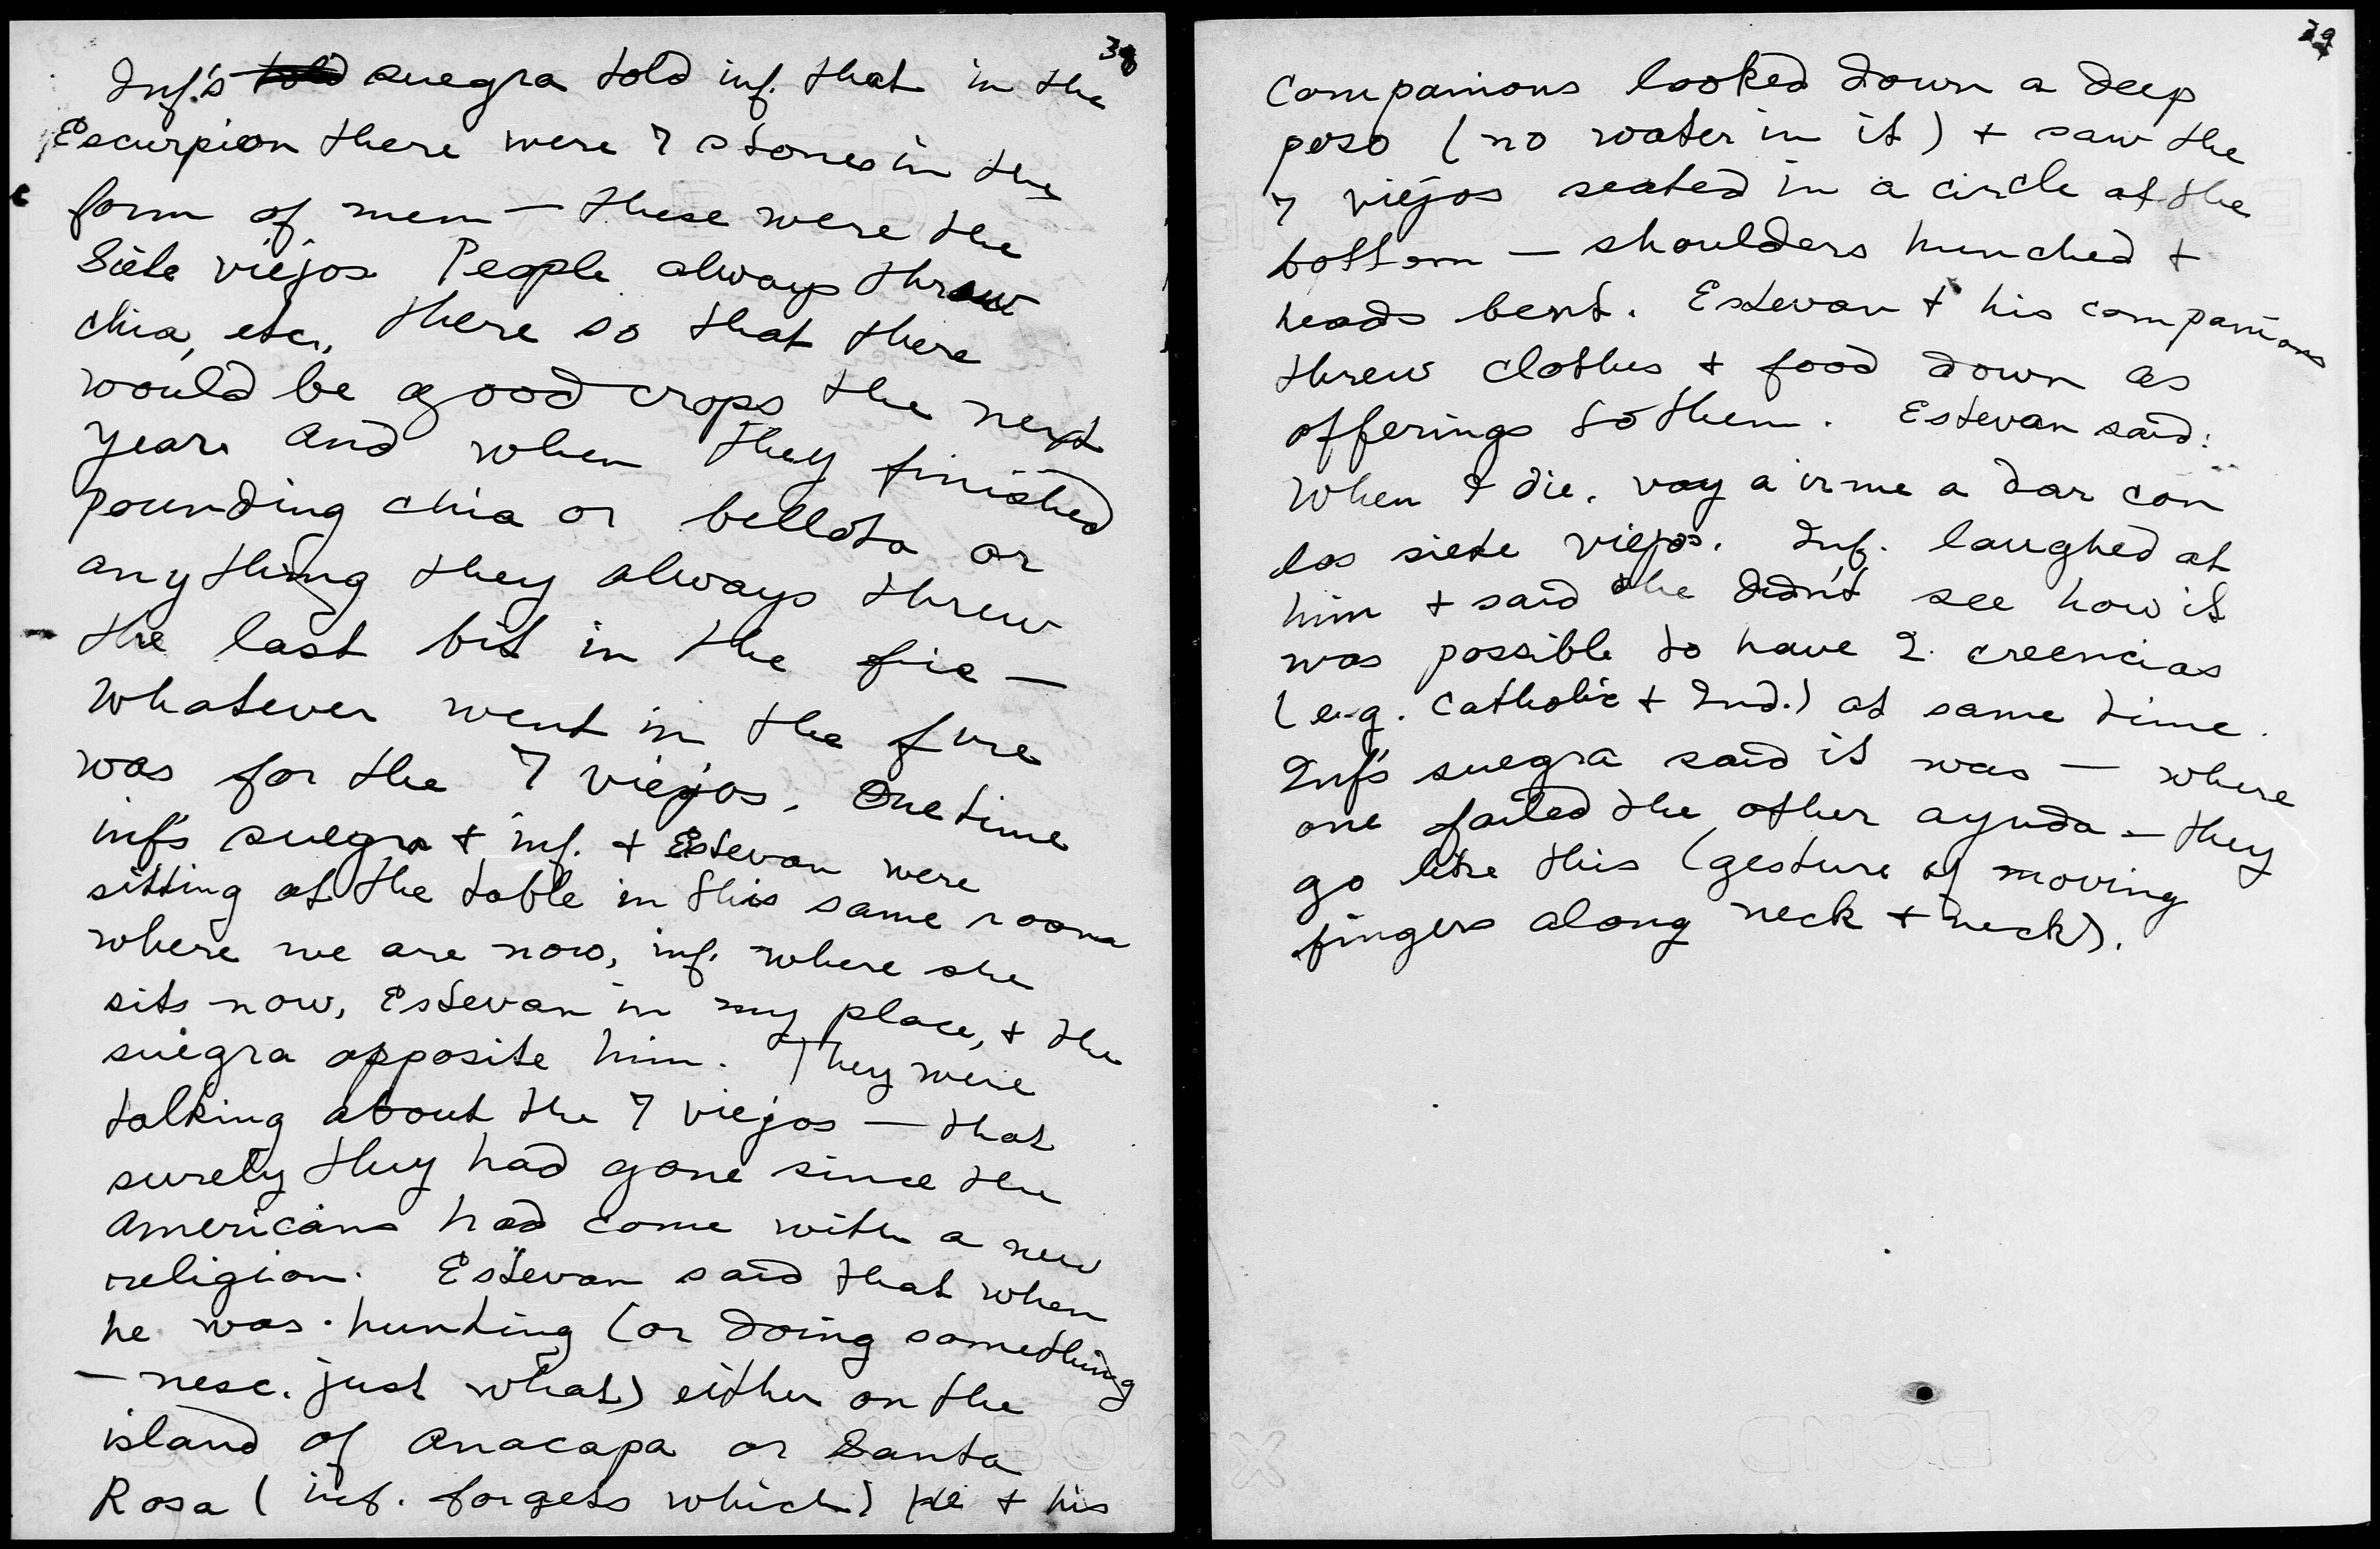 38
Inf's told suegra told inf. that in the
Escurpion there were 7 stones in the
form of men — these were the
Siete viejos. People always threw
chia, etc., there so that there
would be good crops the next
year. And when they finished
pounding chia or bellota or
anything they always threw
the last bit in the fie —
Whatever went in the fire
was for the 7 viejos. One time
inf's suegra + inf. + Estevan were
sitting at the table in this same room
where we are now, inf. where she
sits now, Estevan in my place, + the
suegra opposite him. They were
talking about the 7 viejos — that
surely they had gone since the
Americans had come with a new
religion. Estevan said that when
he was hunting (or doing something
— nesc. just what) either on the
island of Anacapa or Santa
Rosa (inf. forgets which) he + his
39
companions looked down a deep
poso (no water in it) + saw the
7 viejos seated in a circle at the
bottom — shoulders hunched +
heads bent. Estevan + his companions
threw clothes + food down as
offerings to them. Estevan said:
When I die, voy a irme a dar con
los siete viejos. Inf. laughed at
him + said she didn't see how it
was possible to have 2 creencias
(e.g. Catholic + Ind.) at same time.
Inf's suegra said it was — where
one failed the other ayuda — they
go like this (gesture of moving
fingers along neck + neck).